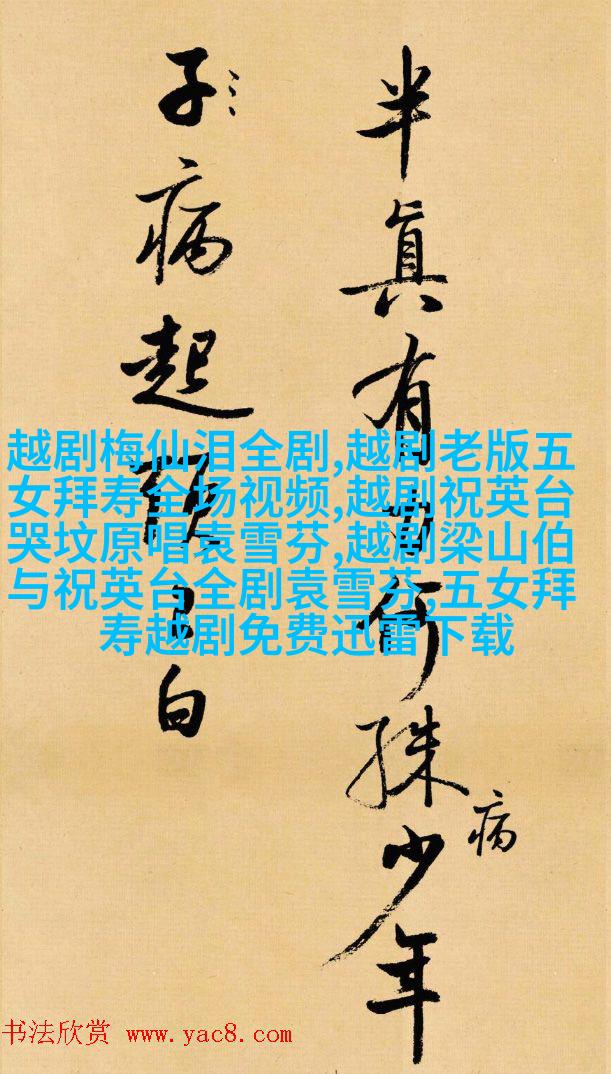 半真有何殊少年
病
子病起白
越剧梅仙泪全剧,越剧老版五
女拜寿全场视频,越剧祝英台
哭坟原唱袁雪芬,越剧梁山伯
与祝英台全剧袁雪芬,五女拜
寿越剧免费迅雷下载
书法欣赏 www.yac8.com